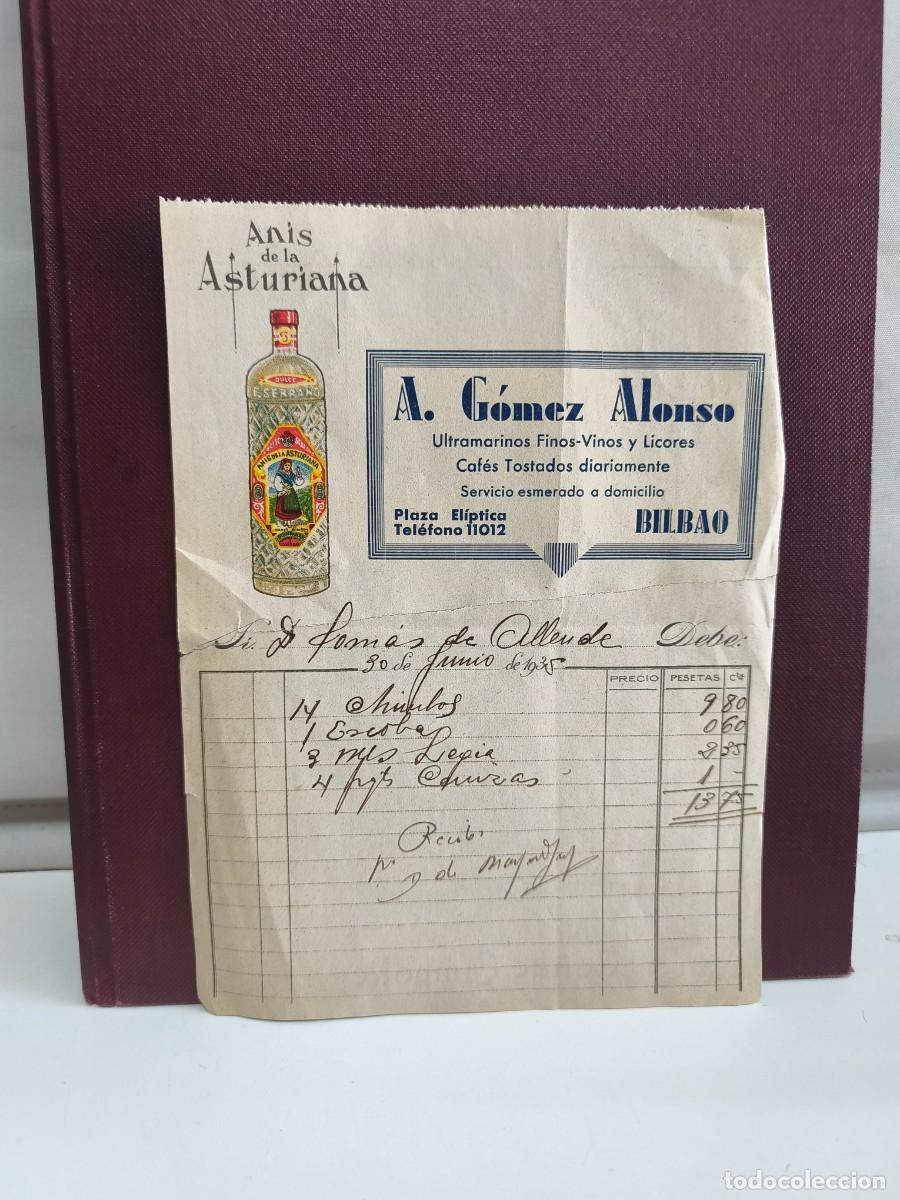 Anis
de la
Asturiana
3
DULCE
F. SERRANO
ANIS DE LA ASTURIANA
A. Gómez Alonso
Ultramarinos Finos-Vinos y Licores
Cafés Tostados diariamente
Servicio esmerado a domicilio
Plaza Elíptica
Teléfono 11012
BILBAO
Sr. D Tomás de Allende Debe:
30 de Junio de 1935
PRECIO PESETAS Cts
14 Chimbos 9 80
1 Escoba 0 60
3 Legia 2 35
4 1 -
13 75
Recibí
D de
todocoleccion